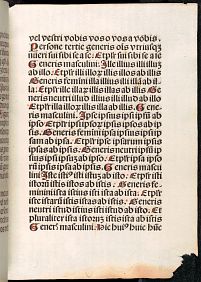 vel vestri vobis vos o vos a vobis.
Persone tertie generis ois vtriusq3
nueri sui sibi se a se: Et plr sui sibi se a se
Generis masculini. Ille illius illi illū
ab illo. Et plr illi illoꝝ illis illos ab illis
Generis feminini illa illius illi illā ab il
la. Et plr ille illaꝝ illis illas ab illis Ge
neris neutri illud illius illi illud ab illo
Et plr illa illoꝝ illis illa ab illis. Gene
ris masculini. Ipse ipsius ipsi ipsū ab
ipso. Et plr ipsi ipsoꝝ ipsis ipsos ab ip
sis. Generis feminini ipsa ipsius ipsi ip
sam ab ipsa. Et plr ipse ipsarum ipsis
ipsas ab ipsis. Generis neutri ipsū ip
sius ipsi ipsum ab ipso. Et plr ipa ipso
rū ipsis ipsa ab ipsis. Generis masculini
Iste isti⁹ isti istū ab isto. Et plr isti
istorū istis istos ab istis. Generis fe-
minini ista istius isti istā ab ista. Et plr
iste istarū istis istas ab istis. Generis
neutri istud istius isti istud ab isto. Et
pluraliter ista istorū istis ista ab istis
Generis masculini. Hic hui⁹ huic hūc